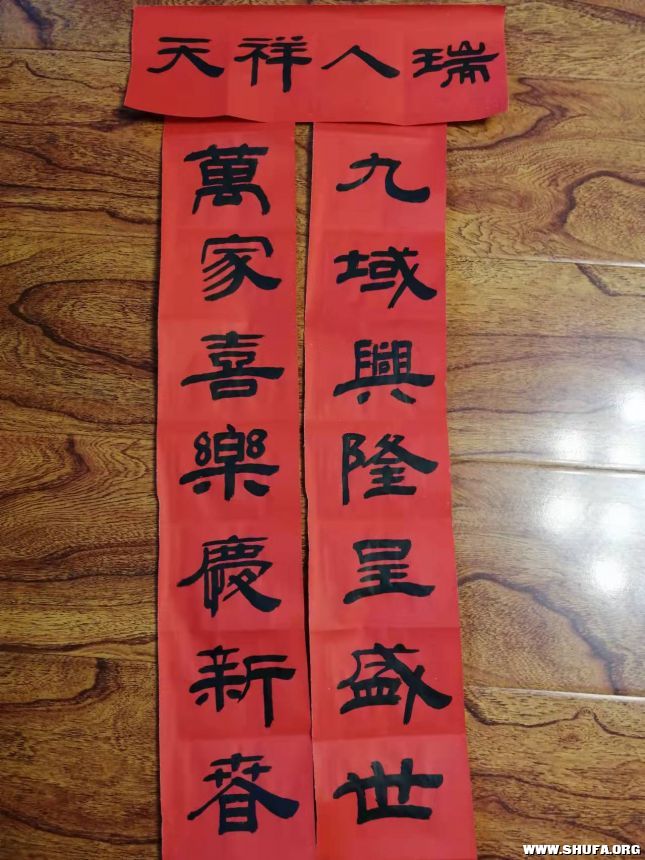 天祥人瑞
九域興隆呈盛世
萬家喜樂慶新春
WWW.SHUFA.ORG